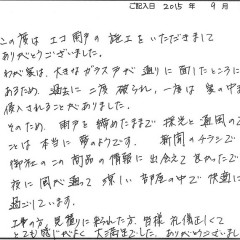 ご記入日 2015年 9月
この度は エコ雨戸の施工をいただきまして
ありがとうございました。
わが家は、大きなガラス戸が通りに面したところに
あるため、過去に二度破られ、一度は家の中まで
侵入されることがありました。
そのため、雨戸を締めたままで採光と通風ので
ことは本当に夢のようです。 新聞のチラシで
御社のこの商品の情報に出会えて良かったです
夜に風が通って涼しい部屋の中で快適に
過ごしています。
工事の方、見積りに来られた方、皆様礼儀正しくて
とても感じがよく大満足でした。ありがとうございま